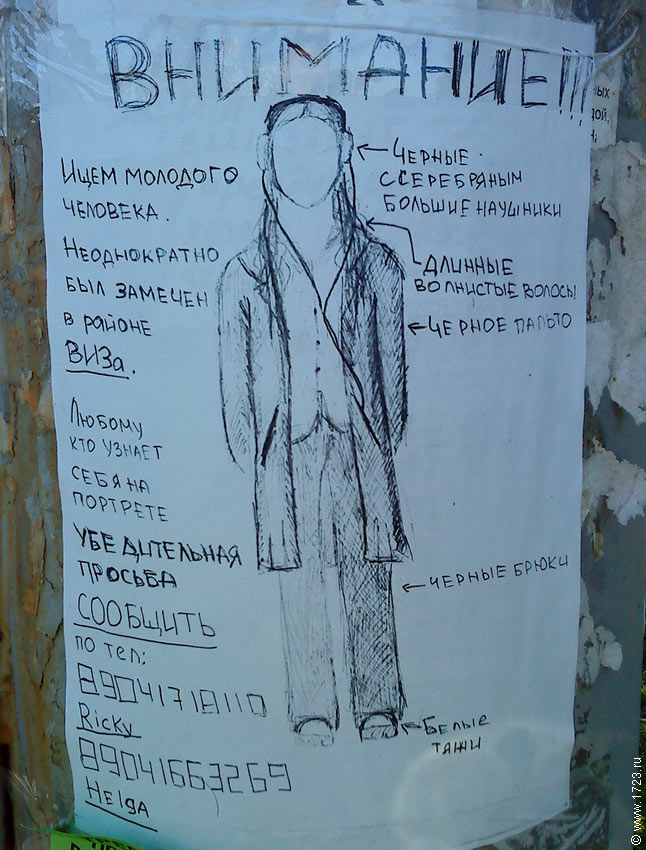 ВНИМАНИЕ!!!
Ищем молодого
человека.
Неоднократно
был замечен
в районе
ВИЗа.
Любому
кто узнает
себя на
портрете
убедительная
просьба
СООБЩИТЬ
по тел:
89041718110
Ricky
89041663269
Helga
Черные
с серебряным
большие наушники
Длинные
волнистые волосы
Черное пальто
Черные брюки
Белые
тажи
© www.1723.ru